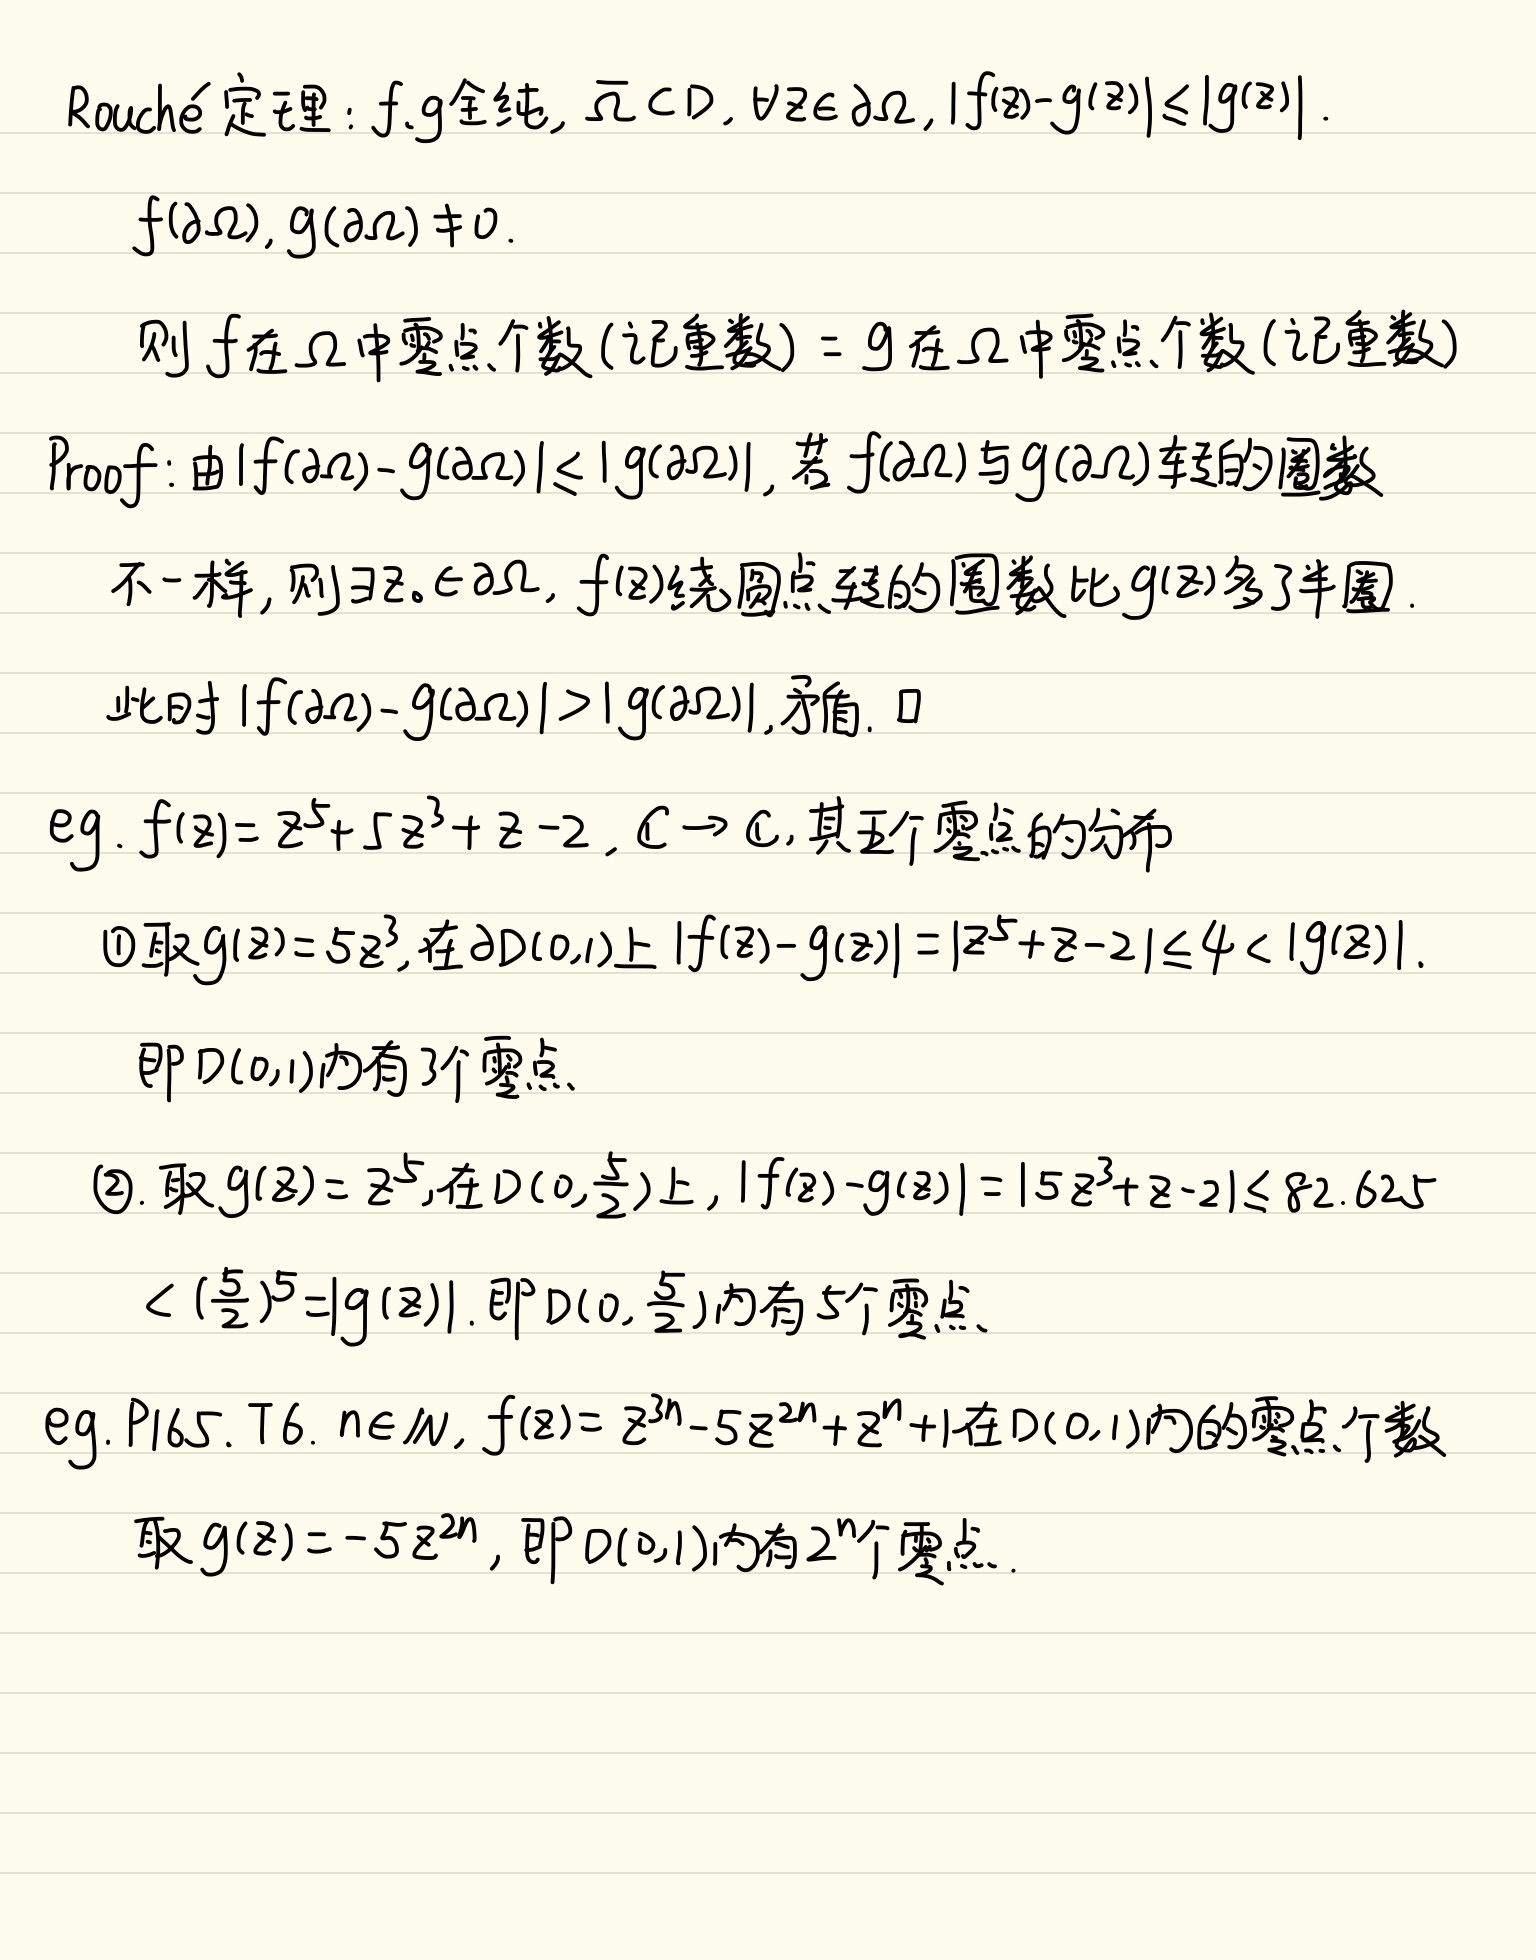 Rouché定理：f.g全纯, Ω̄⊂D, ∀z∈∂Ω, |f(z)-g(z)|≤|g(z)|.
f(∂Ω), g(∂Ω)≠0.
则f在Ω中零点个数(记重数) = g在Ω中零点个数(记重数)
Proof: 由|f(∂Ω)-g(∂Ω)|≤|g(∂Ω)|, 若f(∂Ω)与g(∂Ω)转的圈数
不一样, 则∃z₀∈∂Ω, f(z)绕圆点转的圈数比g(z)多了半圈.
此时|f(∂Ω)-g(∂Ω)|>|g(∂Ω)|, 矛盾. □
eg. f(z)=z⁵+5z³+z-2, ℂ→ℂ, 其五个零点的分布
①取g(z)=5z³, 在∂D(0,1)上|f(z)-g(z)|=|z⁵+z-2|≤4<|g(z)|.
即D(0,1)内有3个零点
②. 取g(z)=z⁵, 在D(0,5/2)上, |f(z)-g(z)|=|5z³+z-2|≤82.625
<(5/2)⁵=|g(z)|. 即D(0,5/2)内有5个零点
eg. P165. T6. n∈ℕ, f(z)=z³ⁿ-5z²ⁿ+zⁿ+1在D(0,1)内的零点个数
取g(z)=-5z²ⁿ, 即D(0,1)内有2ⁿ个零点.